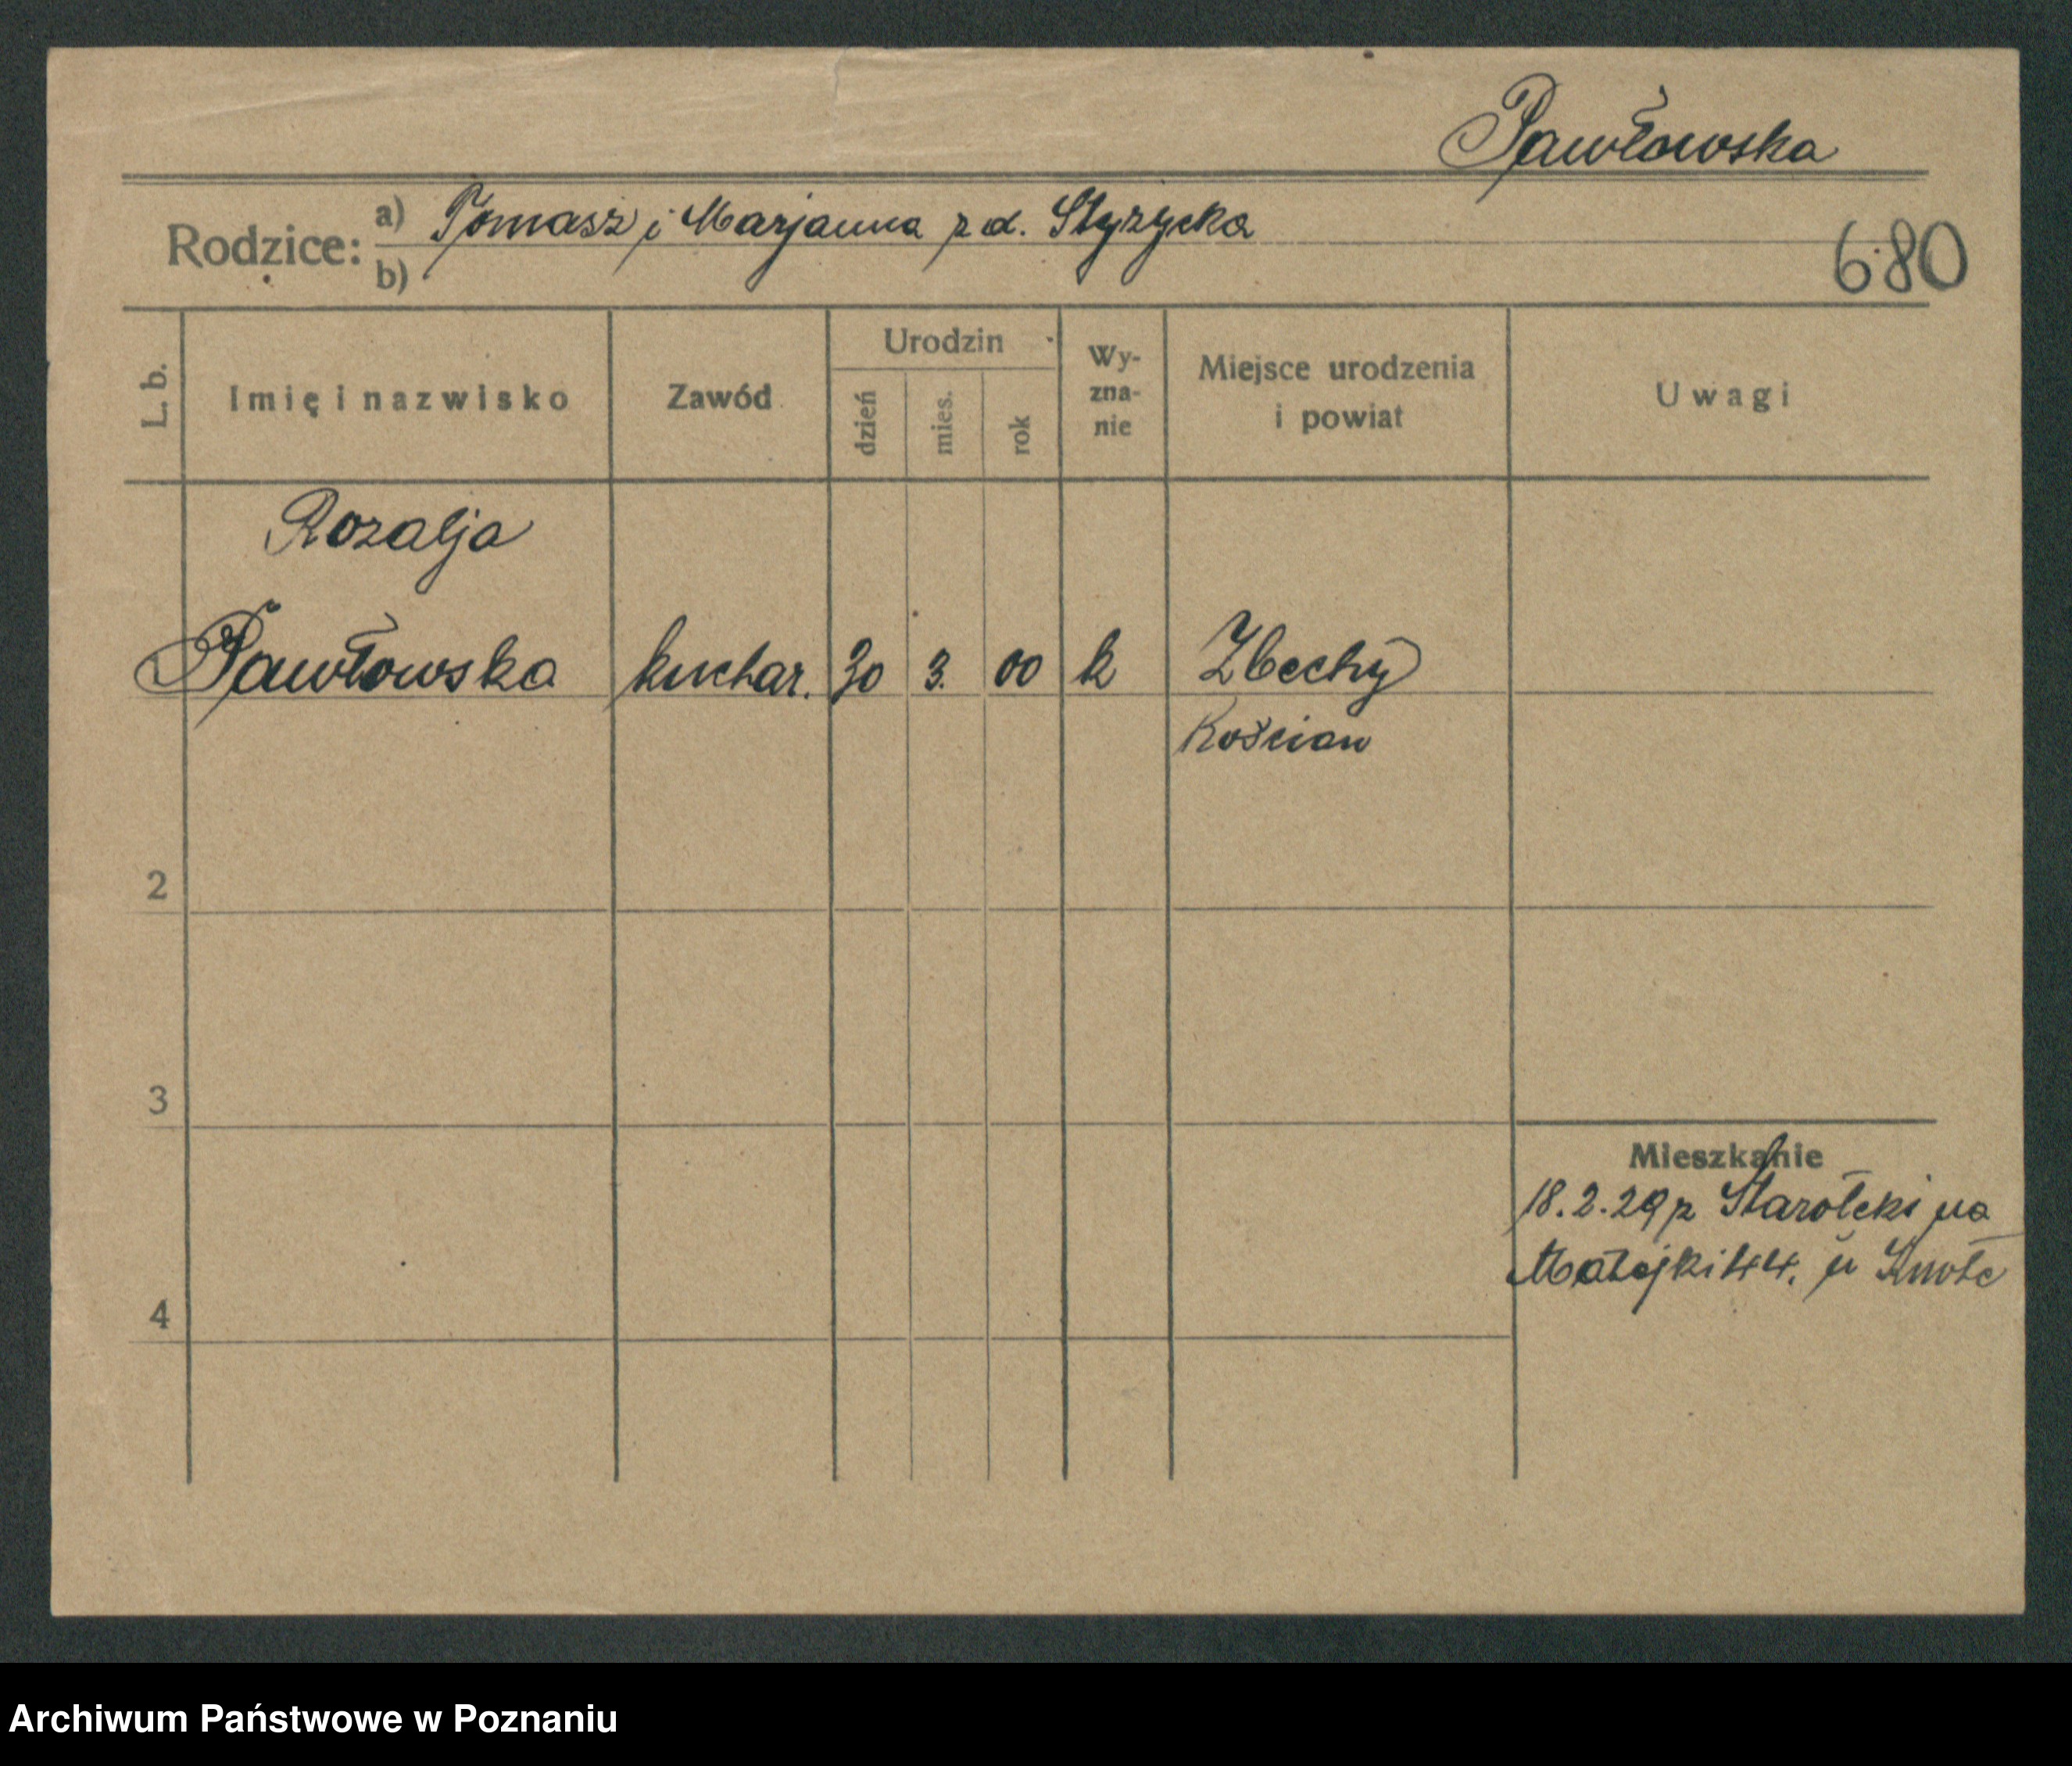 Pawłowska
Rodzice: a) Tomasz i Marjanna z d. Styzycka
b)
680
L. b. Imię i nazwisko Zawód Urodzin dzień mies. rok Wy-zna-nie Miejsce urodzenia i powiat Uwagi
Rozalja
Pawłowska kuchar. 30 3. 00 k Zbechy
Kościan
2
3
Mieszkanie
18.2.29 z Starołeki na
Matejki 44. u
4
Archiwum Państwowe w Poznaniu